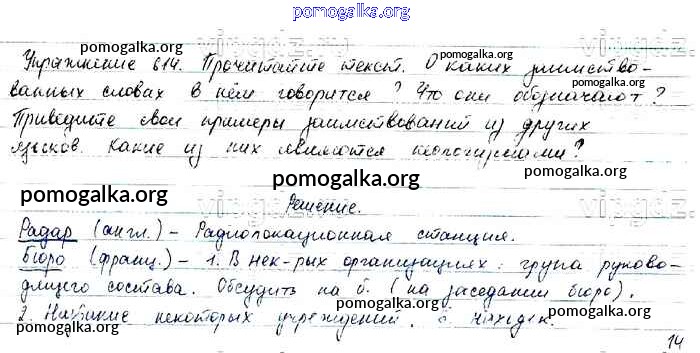 pomogalka.org
Упражнение 614. Прочитайте текст. О каких заимство-
ванных словах в нём говорится? Что они обозначают?
Приведите свои примеры заимствований из других
языков. Какие из них являются неологизмами?
Решение.
Радар (англ.) – Радиолокационная станция.
Бюро (франц.) – 1. В нек-рых организациях: група руково-
дящего состава. Обсудить на б. (на заседании бюро).
2. Название некоторых учреждений. Б. находок.
14
pomogalka.org
pomogalka.org
pomogalka.org
pomogalka.org
pomogalka.org
pomogalka.org
pomogalka.org
pomogalka.org